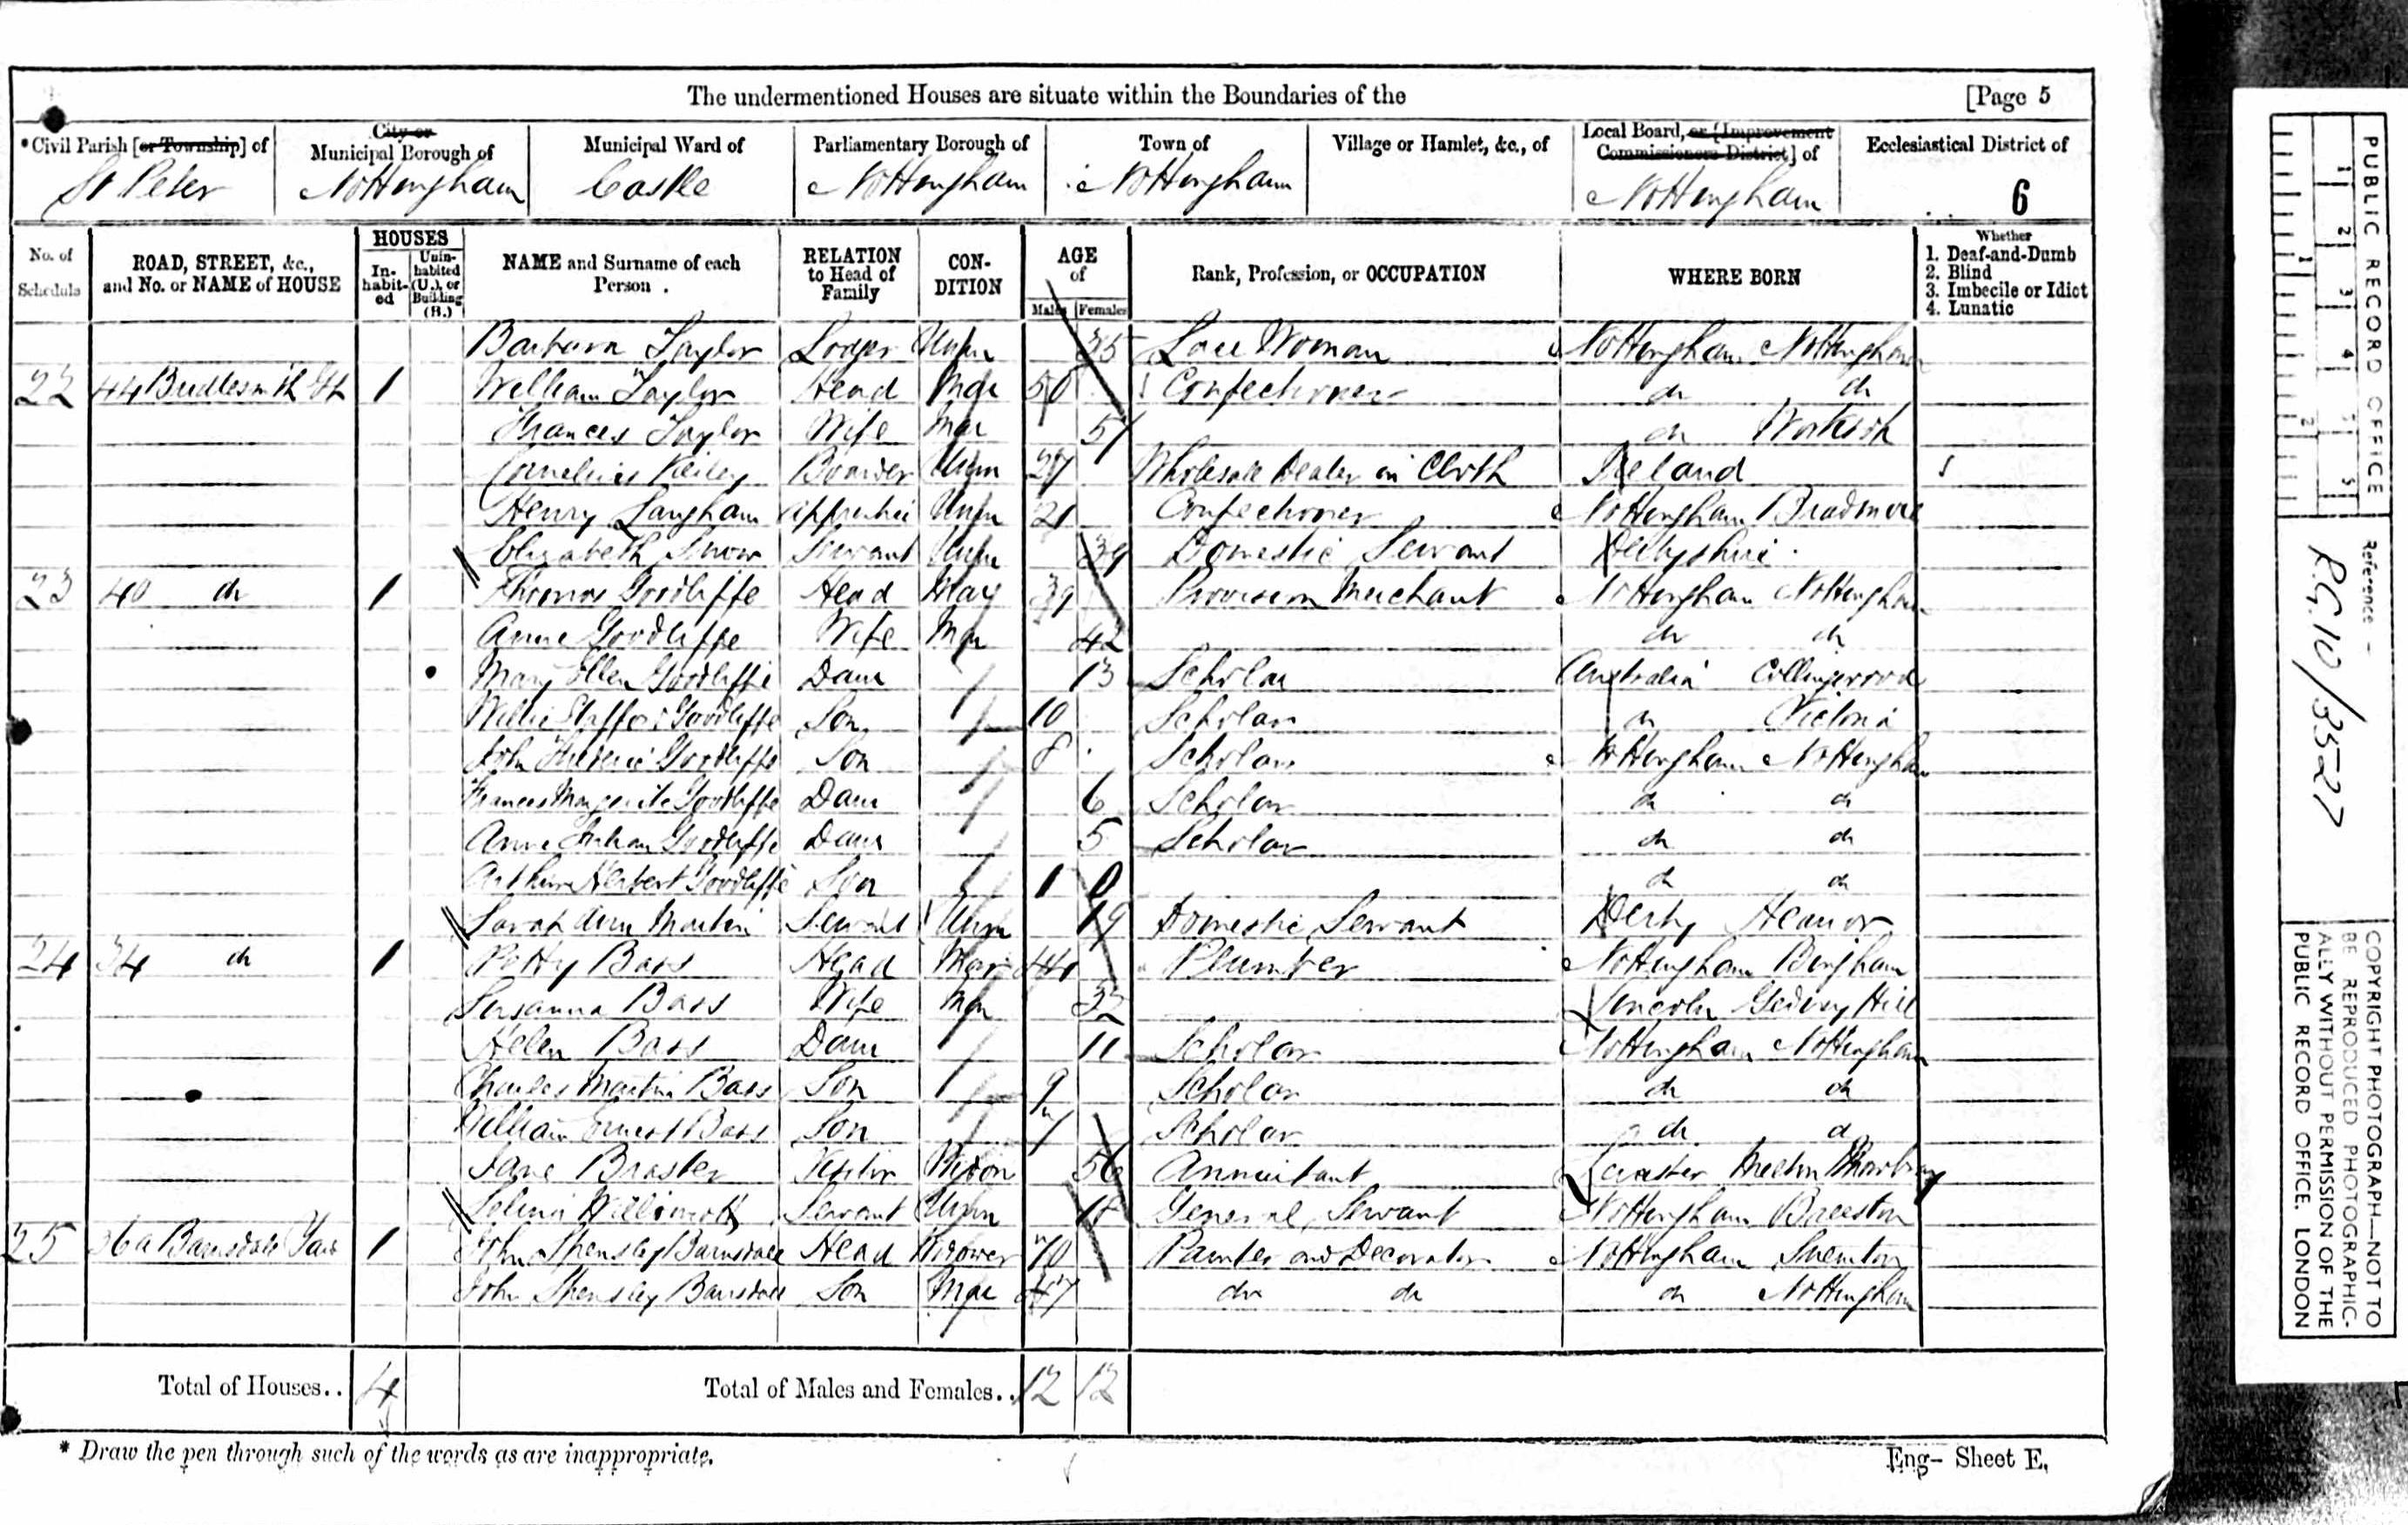 The undermentioned Houses are situate within the Boundaries of the [Page 5
*Civil Parish [or Township] of City or Municipal Borough of Municipal Ward of Parliamentary Borough of Town of Village or Hamlet, &c., of Local Board, or [Improvement Commissioners District] of Ecclesiastical District of
St Peter Nottingham Castle Nottingham Nottingham Nottingham 6
No. of Schedule ROAD, STREET, &c., and No. or NAME of HOUSE HOUSES Inhabited Uninhabited (U.), or Building (B.) NAME and Surname of each Person RELATION to Head of Family CONDITION AGE of Males Females Rank, Profession, or OCCUPATION WHERE BORN Whether 1. Deaf-and-Dumb 2. Blind 3. Imbecile or Idiot 4. Lunatic
Barbara Taylor Lodger Unm 35 Lace Woman Nottingham Nottingham
22 44 Bridlesmith Gt 1 William Taylor Head Mar 50 Confectioner do do
Frances Taylor Wife Mar 51 do Worksop
Cornelius Unm 27 Wholesale Dealer in Cloth Ireland
Henry Langham Apprentice Unm 21 Confectioner Nottingham Bradmore
Elizabeth Snow Servant Unm 39 Domestic Servant Derbyshire
23 40 do 1 Thomas Goodliffe Head Mar 39 Provision Merchant Nottingham Nottingham
Anne Goodliffe Wife Mar 42 do do
Mary Ellen Goodliffe Daur 13 Scholar Australia Collingwood
Willie Stafford Goodliffe Son 10 Scholar do Victoria
John Frederic Goodliffe Son 8 Scholar Nottingham Nottingham
Frances Marguerite Goodliffe Daur 6 Scholar do do
Anne Goodliffe Daur 5 Scholar do do
Arthur Herbert Goodliffe Son 1 do do
Sarah Ann Martin Servant Unm 19 Domestic Servant Derby Heanor
24 34 do 1 Bass Head Mar 44 Plumber Nottingham Bingham
Susanna Bass Wife Mar 32 Lincoln Gedney Hill
Helen Bass Daur 11 Scholar Nottingham Nottingham
Charles Martin Bass Son 9 Scholar do do
William Ernest Bass Son 7 Scholar do do
Jane Visitor Widow 56 Annuitant Leicester Melton Mowbray
Selina Servant Unm 18 General Servant Nottingham Beeston
25 36a Barnsdale Yard 1 John Spensley Barnsdale Head Widower 70 Painter and Decorator Nottingham Sneinton
John Spensley Barnsdale Son Mar 47 do do do Nottingham
Total of Houses.. 4 Total of Males and Females.. 12 12
* Draw the pen through such of the words as are inappropriate.
Eng- Sheet E.
PUBLIC RECORD OFFICE
1 2 3 4 5
1 2
Reference -
R.G. 10/3527
COPYRIGHT PHOTOGRAPH—NOT TO
BE REPRODUCED PHOTOGRAPHIC-
ALLY WITHOUT PERMISSION OF THE
PUBLIC RECORD OFFICE, LONDON